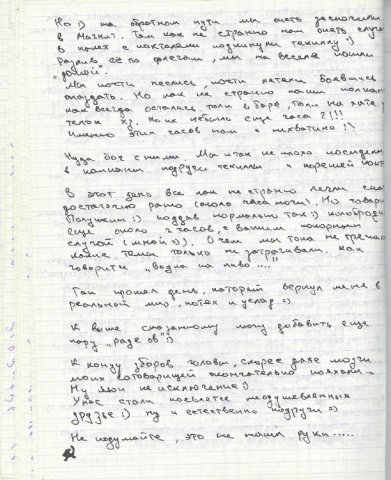 Но :) на обратном пути мы опять заскочили
в магаз. Там как не странно нам опять случ
в комет с коктелями подкинули текиллу :)
Разлив её по флягам, мы на веселе пошли
„домой".
Мы почти неслись, почти летели боявшись
опаздать. Но как не странно наши
как всегда остались толи в баре, толи на хате
телок хз. Но их небыло ещё часа 2!!!
Именно этих часов нам и нехватило :\
Ну да бог с ними. Мы и так не плохо посидели
в компании подруги текиллы и
В этот день все как не странно легли
достаточно рано (около часа ночи). Но товари
Полушкин :) поддав нормально так :) колобродил
еще около 2 часов, с вашим покорным
слугой (мной :)). О чем мы тока не
какие темы только не затрагивали. Как
говорить „водка на пиво ...!"
Так прошел день, который вернул меня в
реальной мир, потех и услад :)
К выше сказанному могу добавить еще
пару „разде ов" :)
К концу зборов головы, скорее даже мозги
моих сотоварищей окончательно поехали
Ну я не исключение :)
У нас стали появлятся неодушевленные
друзье :) ну и естественно подруги :)
Не подумайте, это не наши руки .....